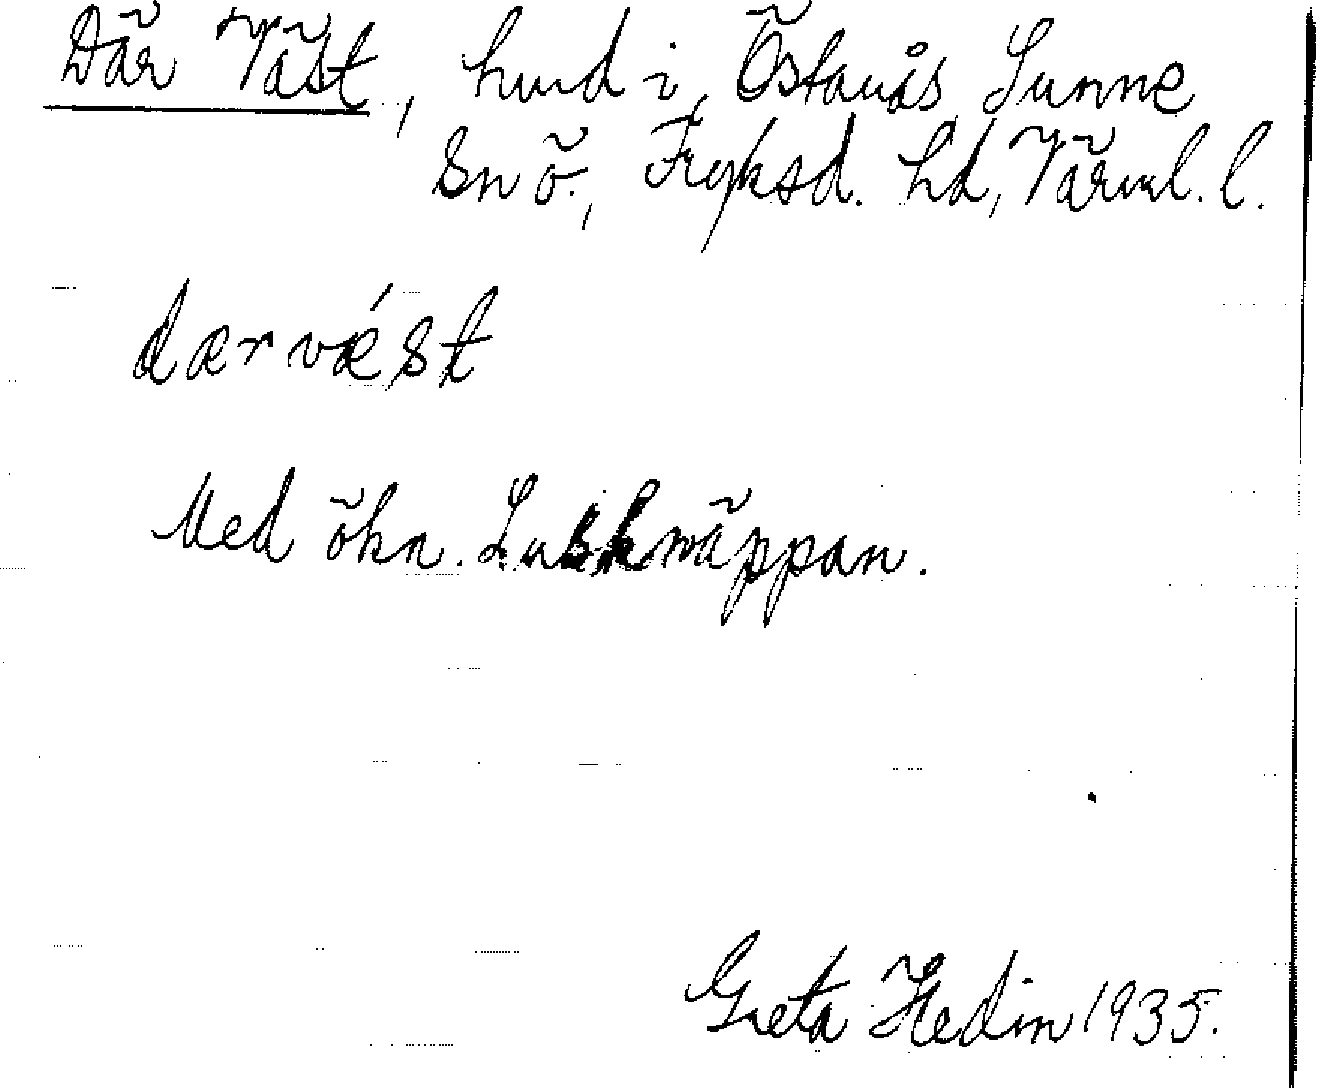 Där Väst, hmd i Östanås, Sunne
sn ö., Fryksd. hd, Värml. l.
dærvǽst
Med ökn. Luskknäppan.
Greta Hedin 1935.